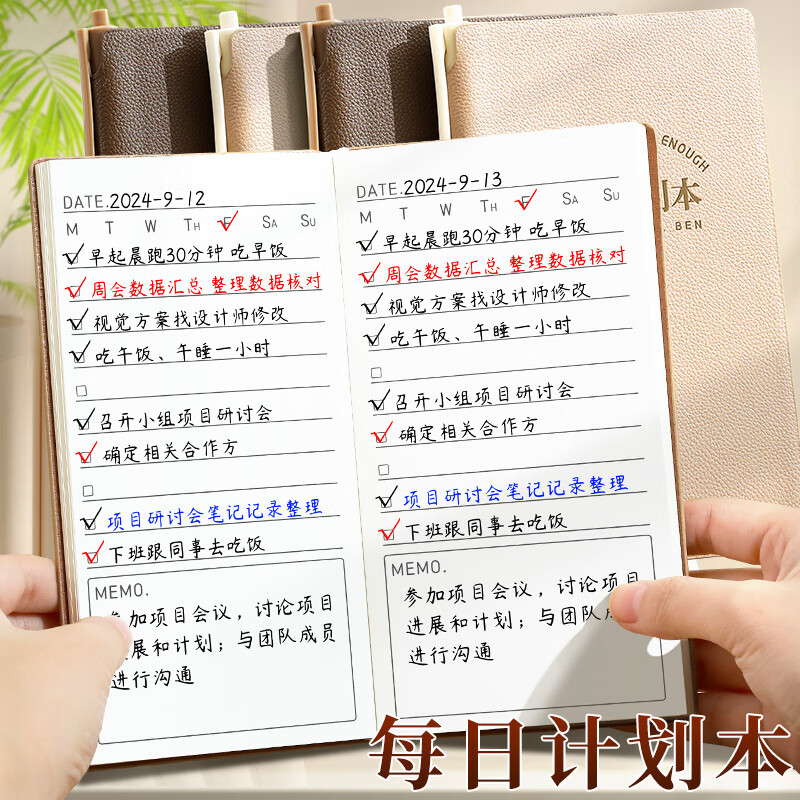 ENOUGH
划本
BEN
DATE.2024-9-12
M T W TH F SA SU
早起晨跑30分钟 吃早饭
周会数据汇总 整理数据核对
视觉方案找设计师修改
吃午饭、午睡一小时
召开小组项目研讨会
确定相关合作方
项目研讨会笔记记录整理
下班跟同事去吃饭
MEMO.
参加项目会议，讨论项目
进展和计划；与团队成员
进行沟通
DATE.2024-9-13
M T W TH F SA SU
早起晨跑30分钟 吃早饭
周会数据汇总 整理数据核对
视觉方案找设计师修改
吃午饭、午睡一小时
召开小组项目研讨会
确定相关合作方
项目研讨会笔记记录整理
下班跟同事去吃饭
MEMO.
参加项目会议，讨论项目
进展和计划；与团队成
进行沟通
每日计划本